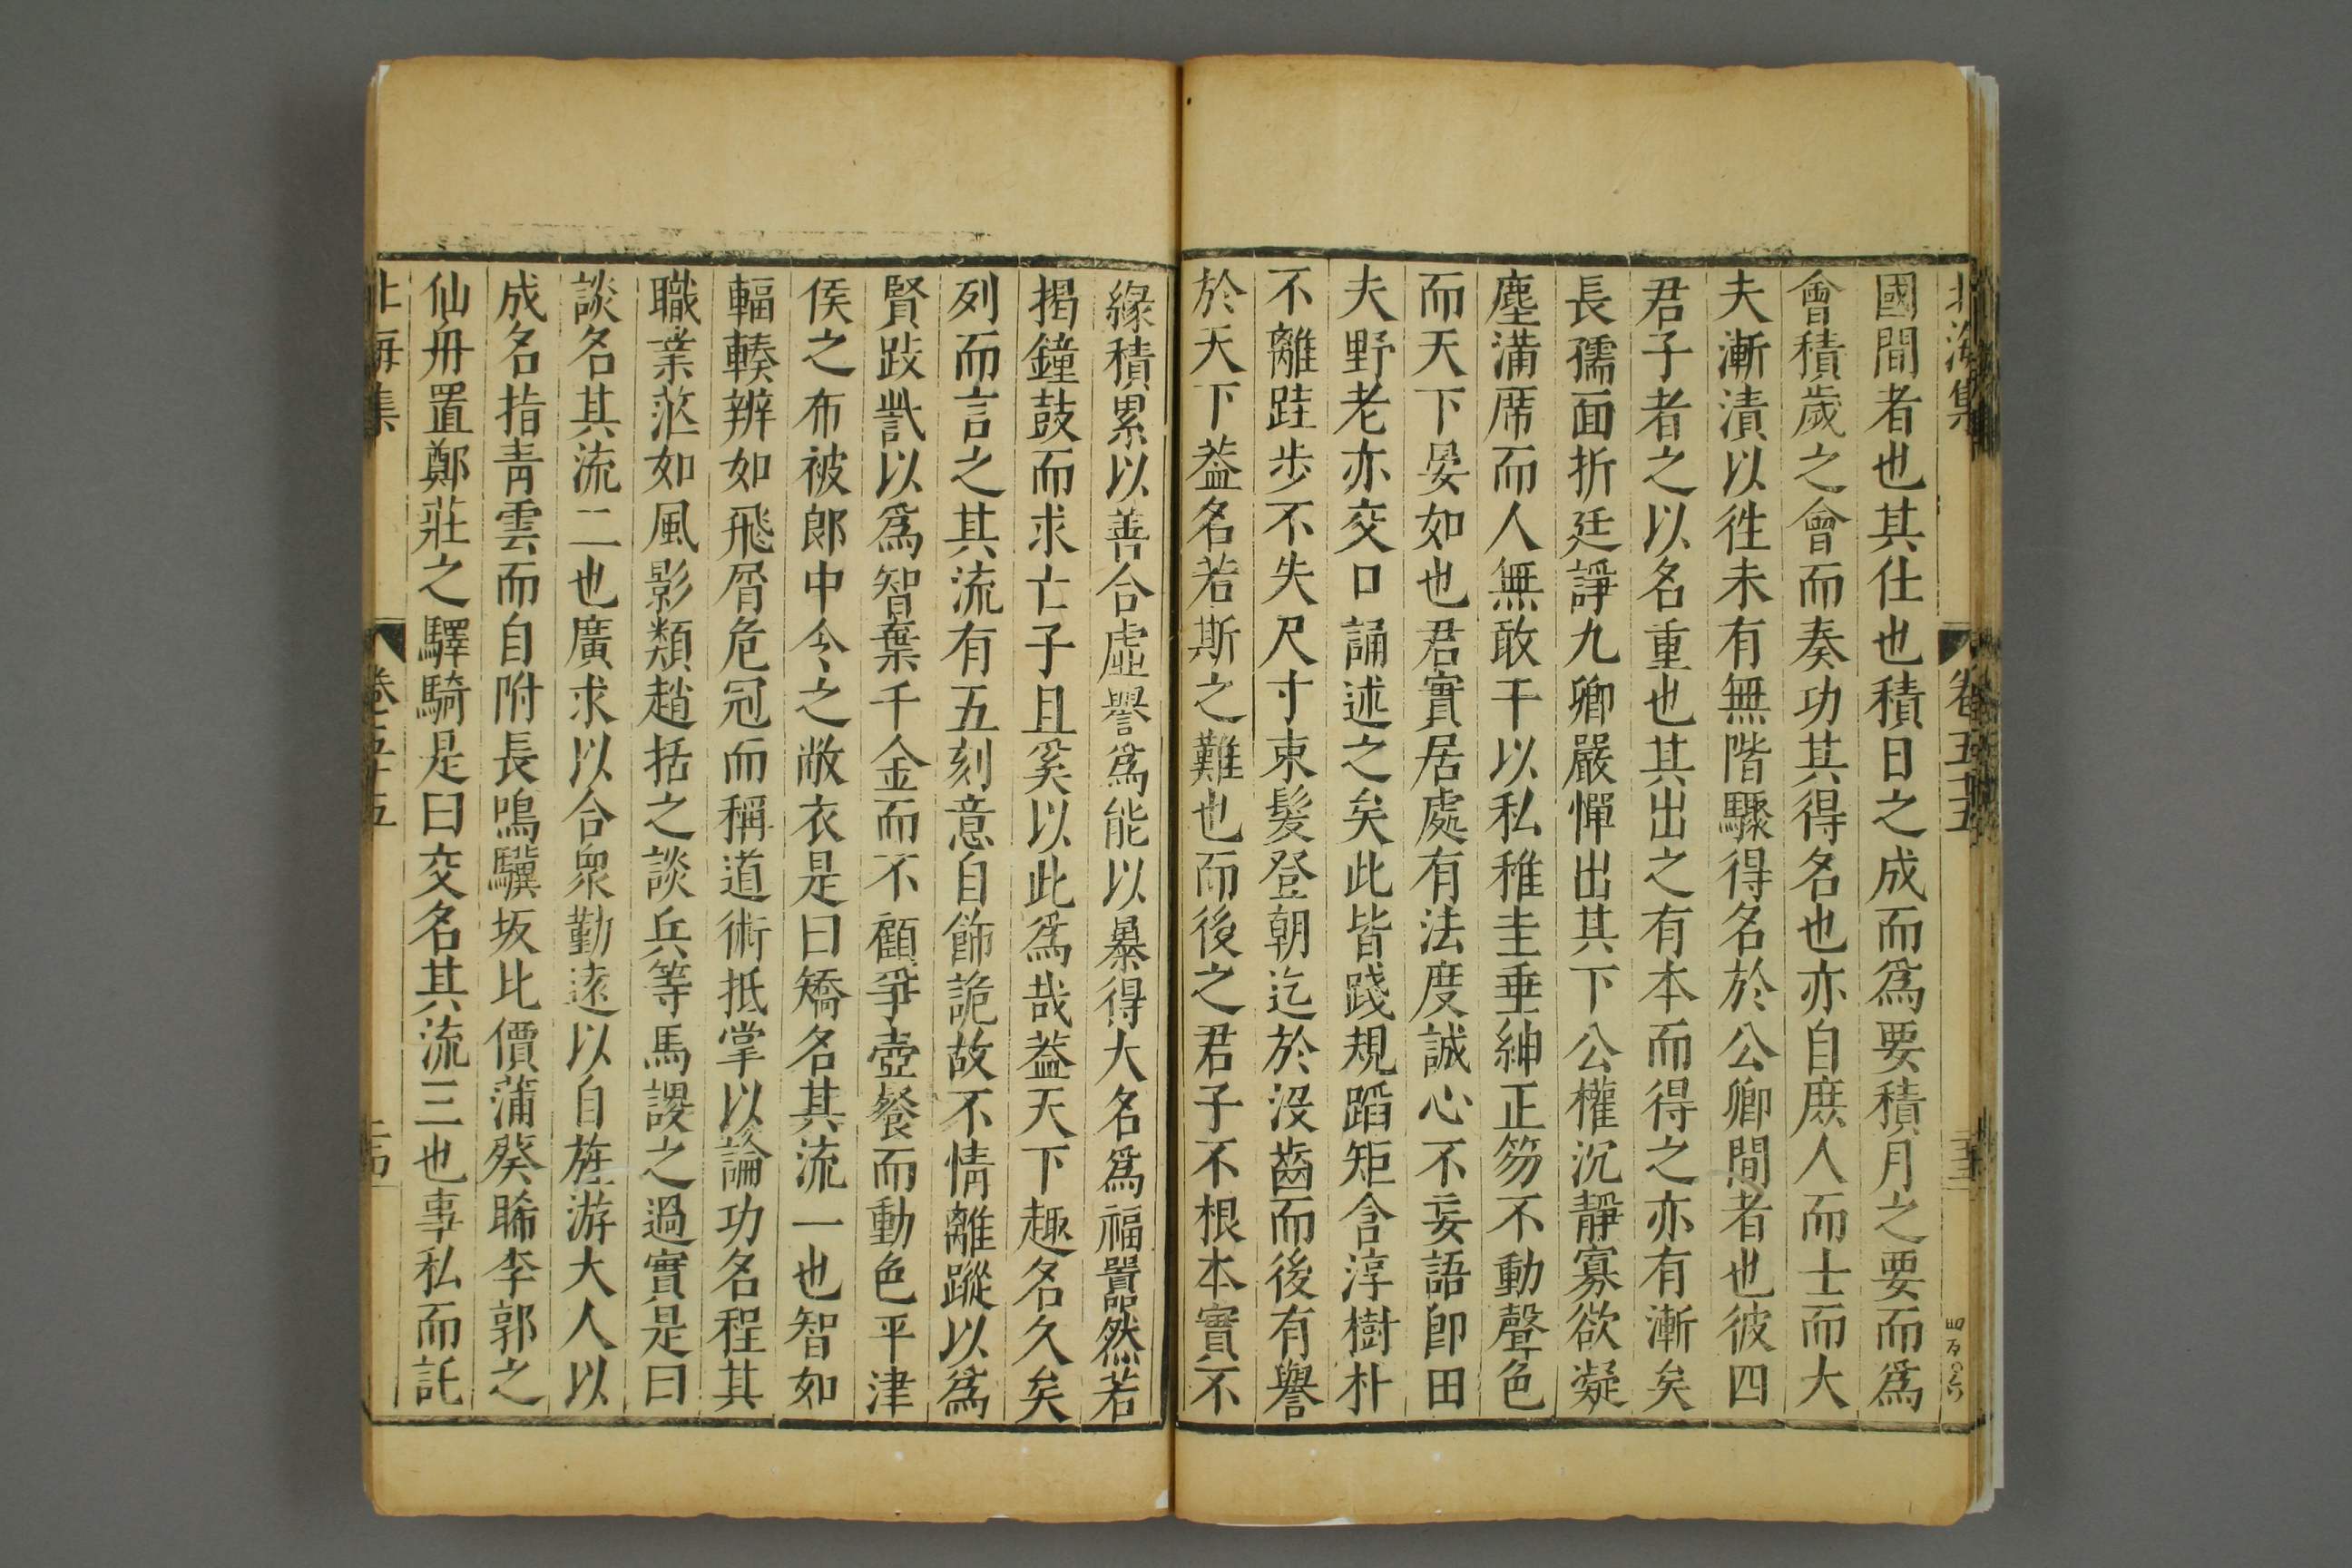 北海集
卷五十五
國間者也其仕也積日之成而爲要積月之要而爲
會積歲之會而奏功其得名也亦自庶人而士而大
夫漸漬以徃未有無階驟得名於公卿間者也彼四
君子者之以名重也其出之有本而得之亦有漸矣
長孺面折廷諍九卿嚴憚出其下公權沉靜寡欲凝
塵滿席而人無敢干以私稚圭垂紳正笏不動聲色
而天下晏如也君實居處有法度誠心不妄語卽田
夫野老亦交口誦述之矣此皆踐規蹈矩含淳樹朴
不離跬步不失尺寸束髮登朝迄於没齒而後有譽
於天下葢名若斯之難也而後之君子不根本實不
緣積累以善合虛譽爲能以暴得大名爲福嚚然若
揭鐘鼓而求亡子且奚以此爲哉葢天下趣名久矣
列而言之其流有五刻意自飾詭故不情離蹤以爲
賢跂訾以爲智棄千金而不顧爭壺餐而動色平津
侯之布被郎中令之敝衣是曰矯名其流一也智如
輻輳辨如飛屑危冠而稱道術抵掌以論功名程其
職業茫如風影類趙括之談兵等馬謖之過實是曰
談名其流二也廣求以合衆勤遠以自旌游大人以
成名指青雲而自附長鳴驥坂比價蒲葵睎李郭之
仙舟置鄭莊之驛騎是曰交名其流三也事私而託
北海集
卷五十五